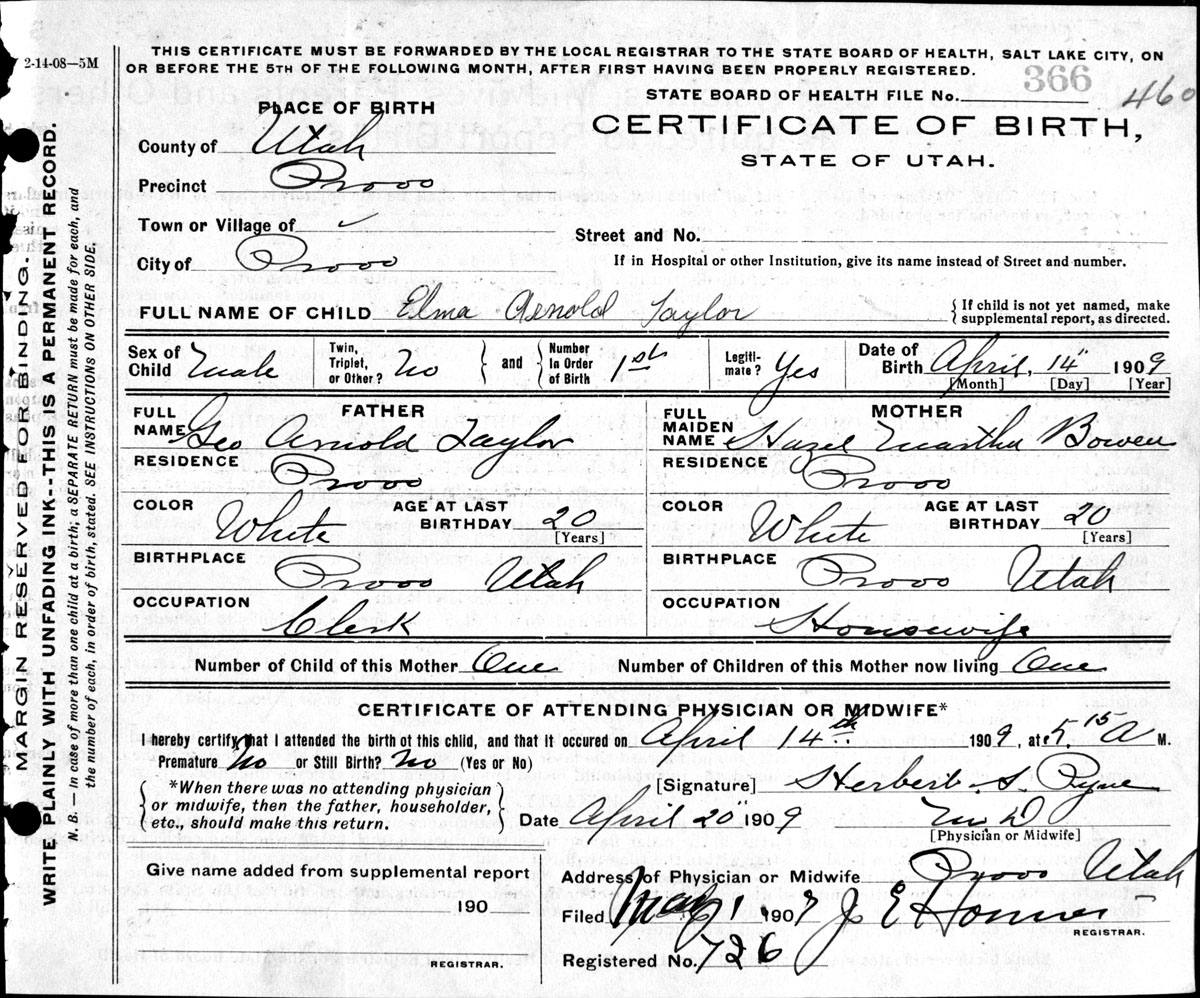 2-14-08—5M
THIS CERTIFICATE MUST BE FORWARDED BY THE LOCAL REGISTRAR TO THE STATE BOARD OF HEALTH, SALT LAKE CITY, ON
OR BEFORE THE 5TH OF THE FOLLOWING MONTH, AFTER FIRST HAVING BEEN PROPERLY REGISTERED.
STATE BOARD OF HEALTH FILE No. 366 460
PLACE OF BIRTH
CERTIFICATE OF BIRTH,
STATE OF UTAH.
County of Utah
Precinct Provo
Town or Village of ✓
Street and No.
City of Provo
If in Hospital or other Institution, give its name instead of Street and number.
FULL NAME OF CHILD Elma Arnold Taylor { If child is not yet named, make
supplemental report, as directed.
Sex of Child Male Twin, Triplet, or Other? No } and { Number In Order of Birth 1st Legiti-mate? Yes Date of Birth April, 14" 1909
[Month] [Day] [Year]
FATHER
FULL NAME Geo Arnold Taylor
RESIDENCE Provo
COLOR White AGE AT LAST BIRTHDAY 20 [Years]
BIRTHPLACE Provo Utah
OCCUPATION Clerk
MOTHER
FULL MAIDEN NAME Hazel Martha Bowen
RESIDENCE Provo
COLOR White AGE AT LAST BIRTHDAY 20 [Years]
BIRTHPLACE Provo Utah
OCCUPATION Housewife
Number of Child of this Mother One Number of Children of this Mother now living One
CERTIFICATE OF ATTENDING PHYSICIAN OR MIDWIFE*
I hereby certify that I attended the birth of this child, and that it occured on April 14th 1909, at 5.15 A M.
Premature No or Still Birth? No (Yes or No)
{ *When there was no attending physician
or midwife, then the father, householder,
etc., should make this return. }
[Signature] Herbert S. Pyne
Date April 20" 1909 M D
[Physician or Midwife]
Give name added from supplemental report
190
REGISTRAR.
Address of Physician or Midwife Provo Utah
Filed May 1 1909 J E
REGISTRAR.
Registered No. 726
MARGIN RESERVED FOR BINDING.
WRITE PLAINLY WITH UNFADING INK--THIS IS A PERMANENT RECORD.
N. B. — In case of more than one child at a birth; a SEPARATE RETURN must be made for each, and
the number of each, in order of birth, stated. SEE INSTRUCTIONS ON OTHER SIDE.